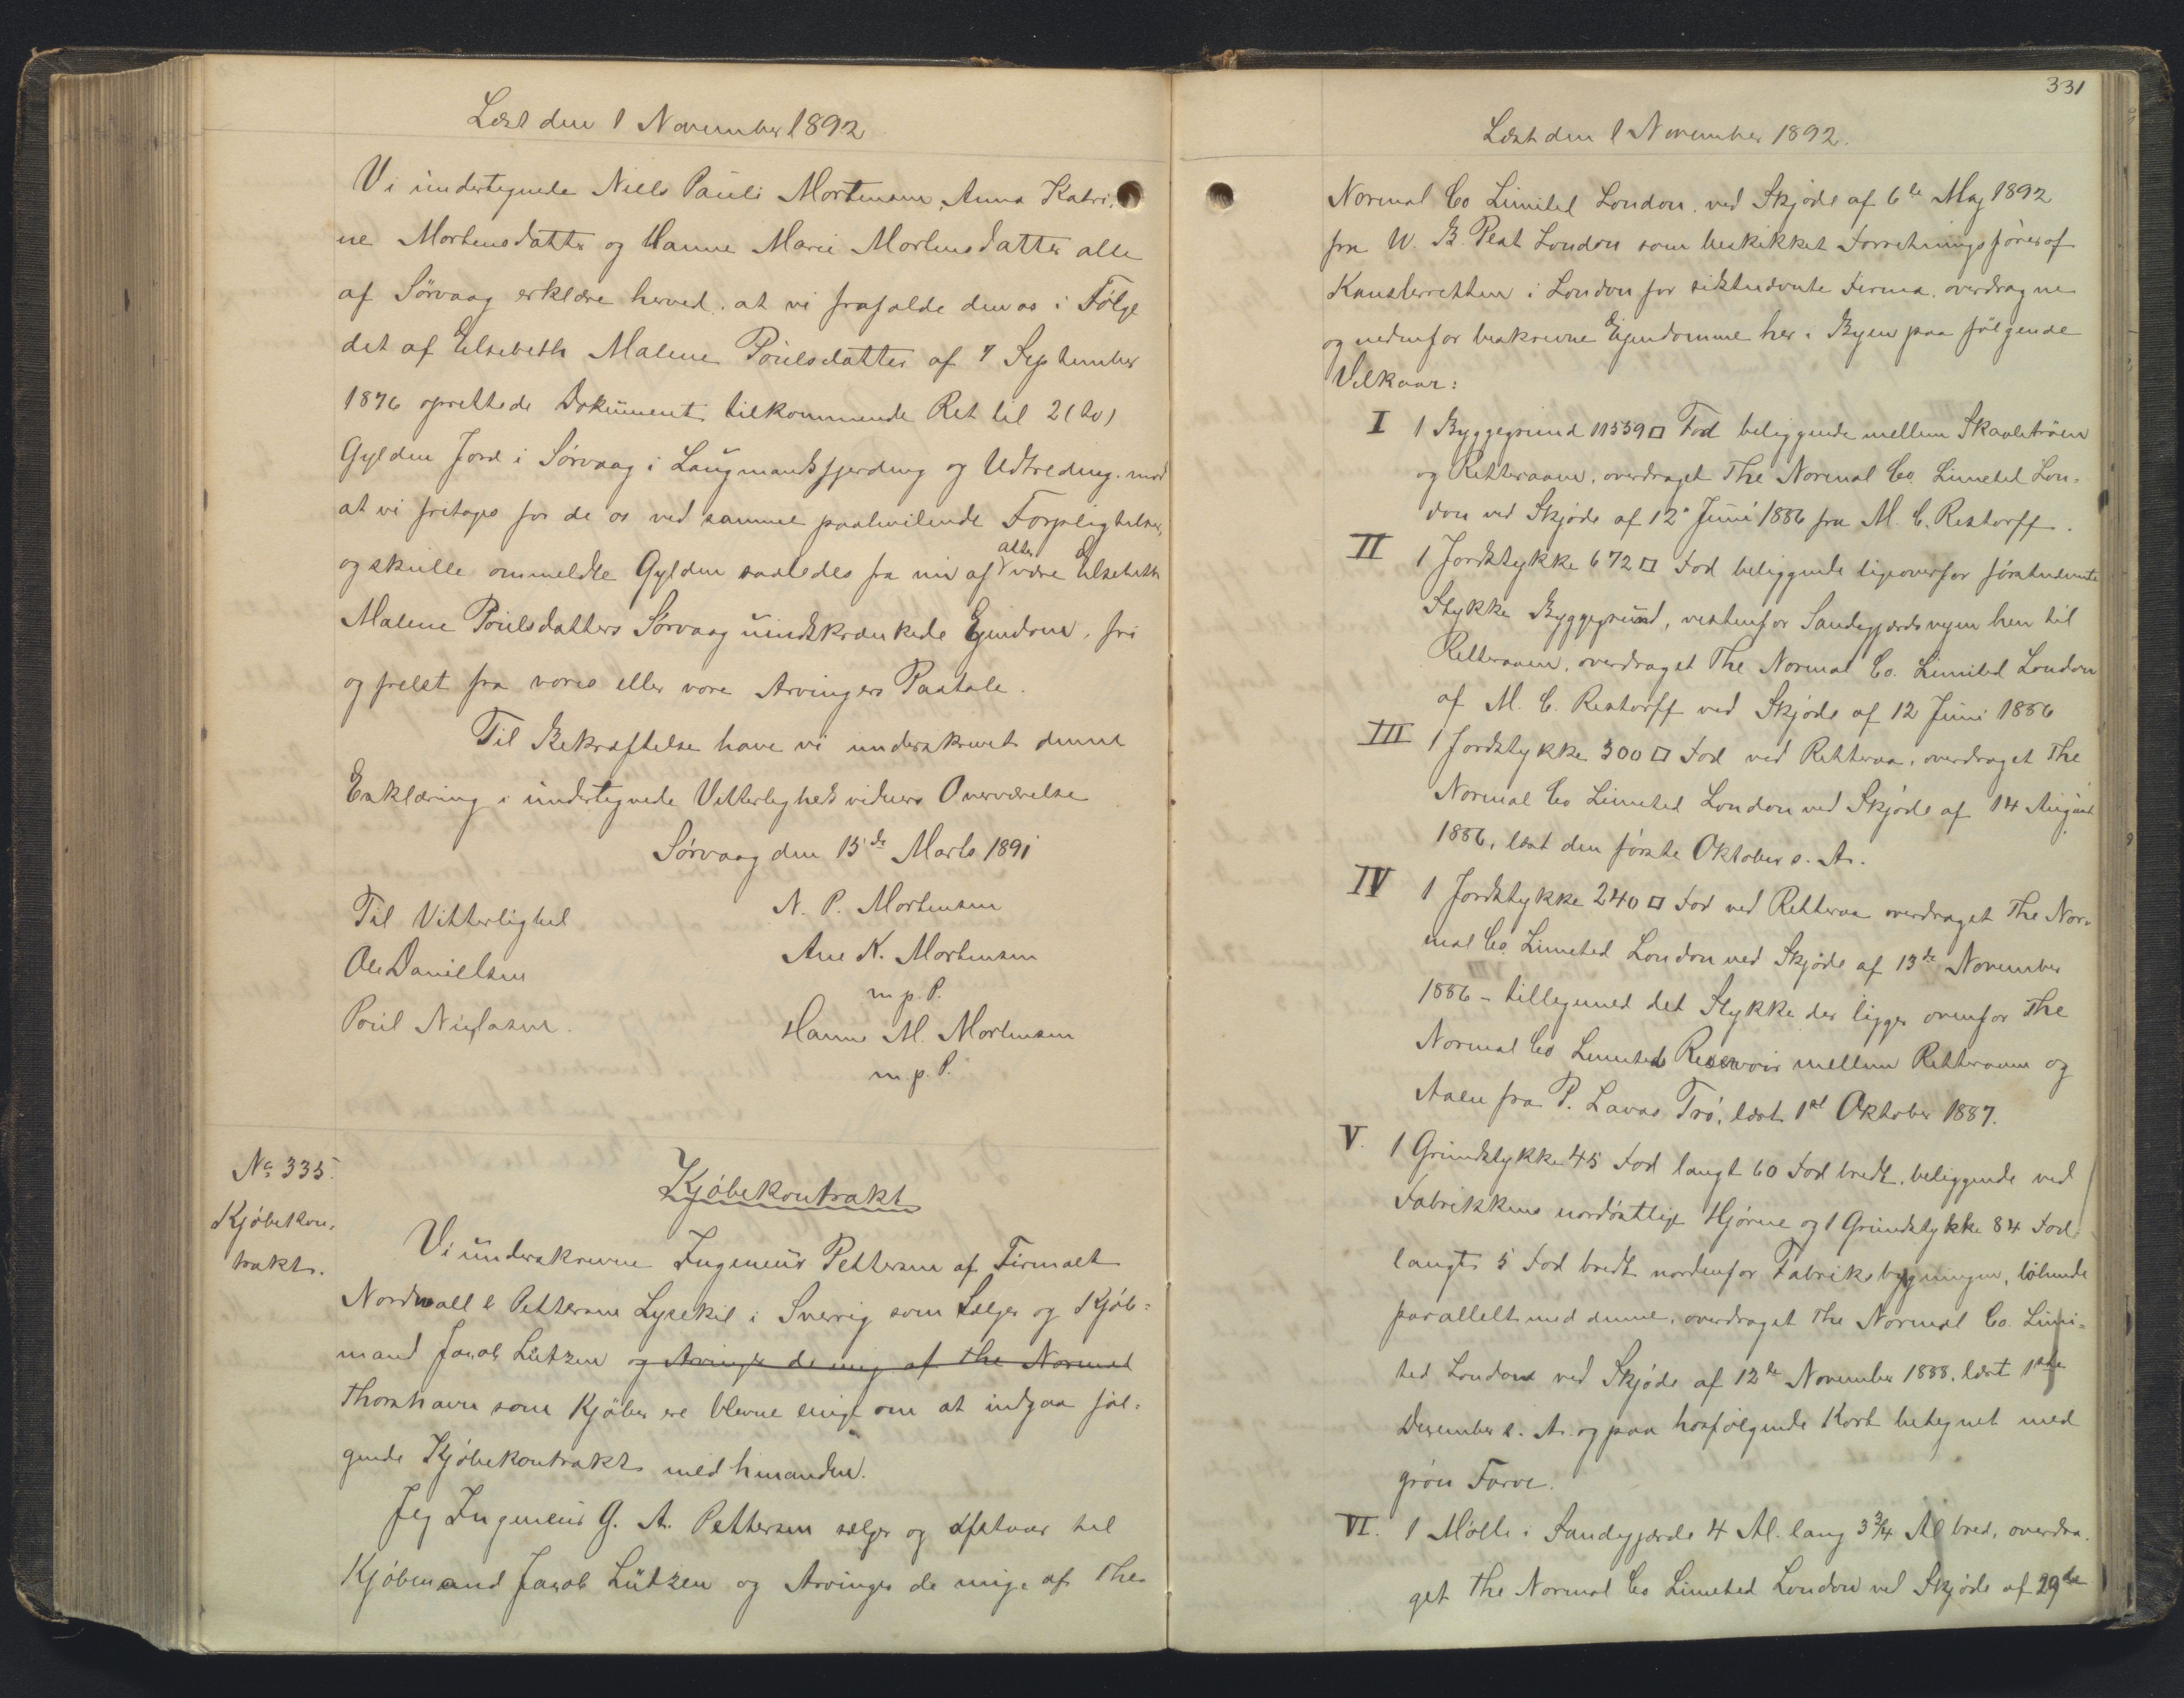 Læst den 1 November 1892
Vi undertegnede Niels Pauli Mortensen, Anna Katri-
ne Mortensdatter og Hanne Marie Mortensdatter alle
af Sörvaag erklære herved, at vi frafalde den os i Følge
det af Elsebeth Malene Poulsdatter af 7 September
1876 oprettede Dokument tilkommende Ret til 2 (to)
Gylden Jord i Sørvaag i Laugmandsfjerding og Udtreding, mod
at vi fritages for de os ved samme paahvilende Forpligtelser,
og skulle ommeldte Gylden saaledes fra nu af atter være Elsebeth
Malene Poulsdatters Sørvaag uindskrænkede Ejendom, fri
og frelst fra vores eller vore Arvingers Paatale.
Til Bekræftelse have vi underskrevet denne
Erklæring i undertegnede Vitterligheds vidners Overværelse
Sørvaag den 15de Marts 1891
Til Vitterlighed
Ole Danielsen
Poul Niclasen.
N. P. Mortensen
Ane K. Mortensen
m. p. P.
Hanne M. Mortensen
m. p. P.
No 335.
Kjøbekon-
trakt.
Kjøbekontrakt
Vi underskrevne Ingeniør Pettersen af Firmaet
Nordwall & Pettersen Lysekil i Sverrig som Sælger og Kjøb-
mand Jacob Lützen og Arvinger de meg af the Normal
Thorshavn som Kjøber ere blevne enige om at indgaa føl-
gende Kjøbekontrakt med hinanden.
Jeg Ingeniør G. A. Pettersen sælger og afstaar til
Kjøbmand Jacob Lützen og Arvinger de mig af The
331
Læst den 1 November 1892.
Normal Co Limited London, ved Skjøde af 6te Maj 1892
fra W. B. Peat London som beskikket Forretningsfører af
Kanslerretten i London for sidstnævnte Firma, overdragne
og nedenfor beskrevne Ejendomme her i Byen paa følgende
Vilkaar:
I 1 Byggegrund 11539 □ Fod beliggende mellem Skaaletrøen
og Retteraaen, overdraget The Normal Co. Limeted Lon-
don ved Skjøde af 12 Juni 1886 fra M. C. Restorff.
II 1 Jordstykke 672 □ Fod beliggende ligeoverfor førstnævnte
Stykke Byggegrund, vestenfor Sandegjærdsvejen hen til
Retteraaen, overdraget The Normal Co. Limited London
af M. C. Restorff ved Skjøde af 12 Juni 1886
III 1 Jordstykke 300 □ Fod ved Retteraa, overdraget The
Normal Co Limeted London ved Skjøde af 14 August
1886, læst den første Oktober s. A.
IV 1 Jordstykke 240 □ Fod ved Retteraa overdraget The Nor-
mal Co. Limeted London ved Skjøde af 13de November
1886 - tilligemed det Stykke der ligger ovenfor The
Normal Co Limeted Reservoir mellem Retteraaen og
Aaen fra P. Lavas Trø, læst 1st Oktober 1887.
V. 1 Grundstykke 45 Fod langt 60 Fod bredt, beliggende ved
Fabrikkens nordøstlige Hjørne og 1 Grundstykke 84 Fod
langt 5 Fod bredt nordenfor Fabriksbygningen, løbende
parallelt med denne, overdraget The Normal Co. Limi-
ted London ved Skjøde af 12te November 1888, læst 1ste
December s. A. og paa hosfølgende Kort betegnet med
grøn Farve.
VI. 1 Mølle i Sandegjærde 4 Al. lang 3 3/4 Al bred, overdra-
get The Normal Co Limeted London ved Skjøde af 29de